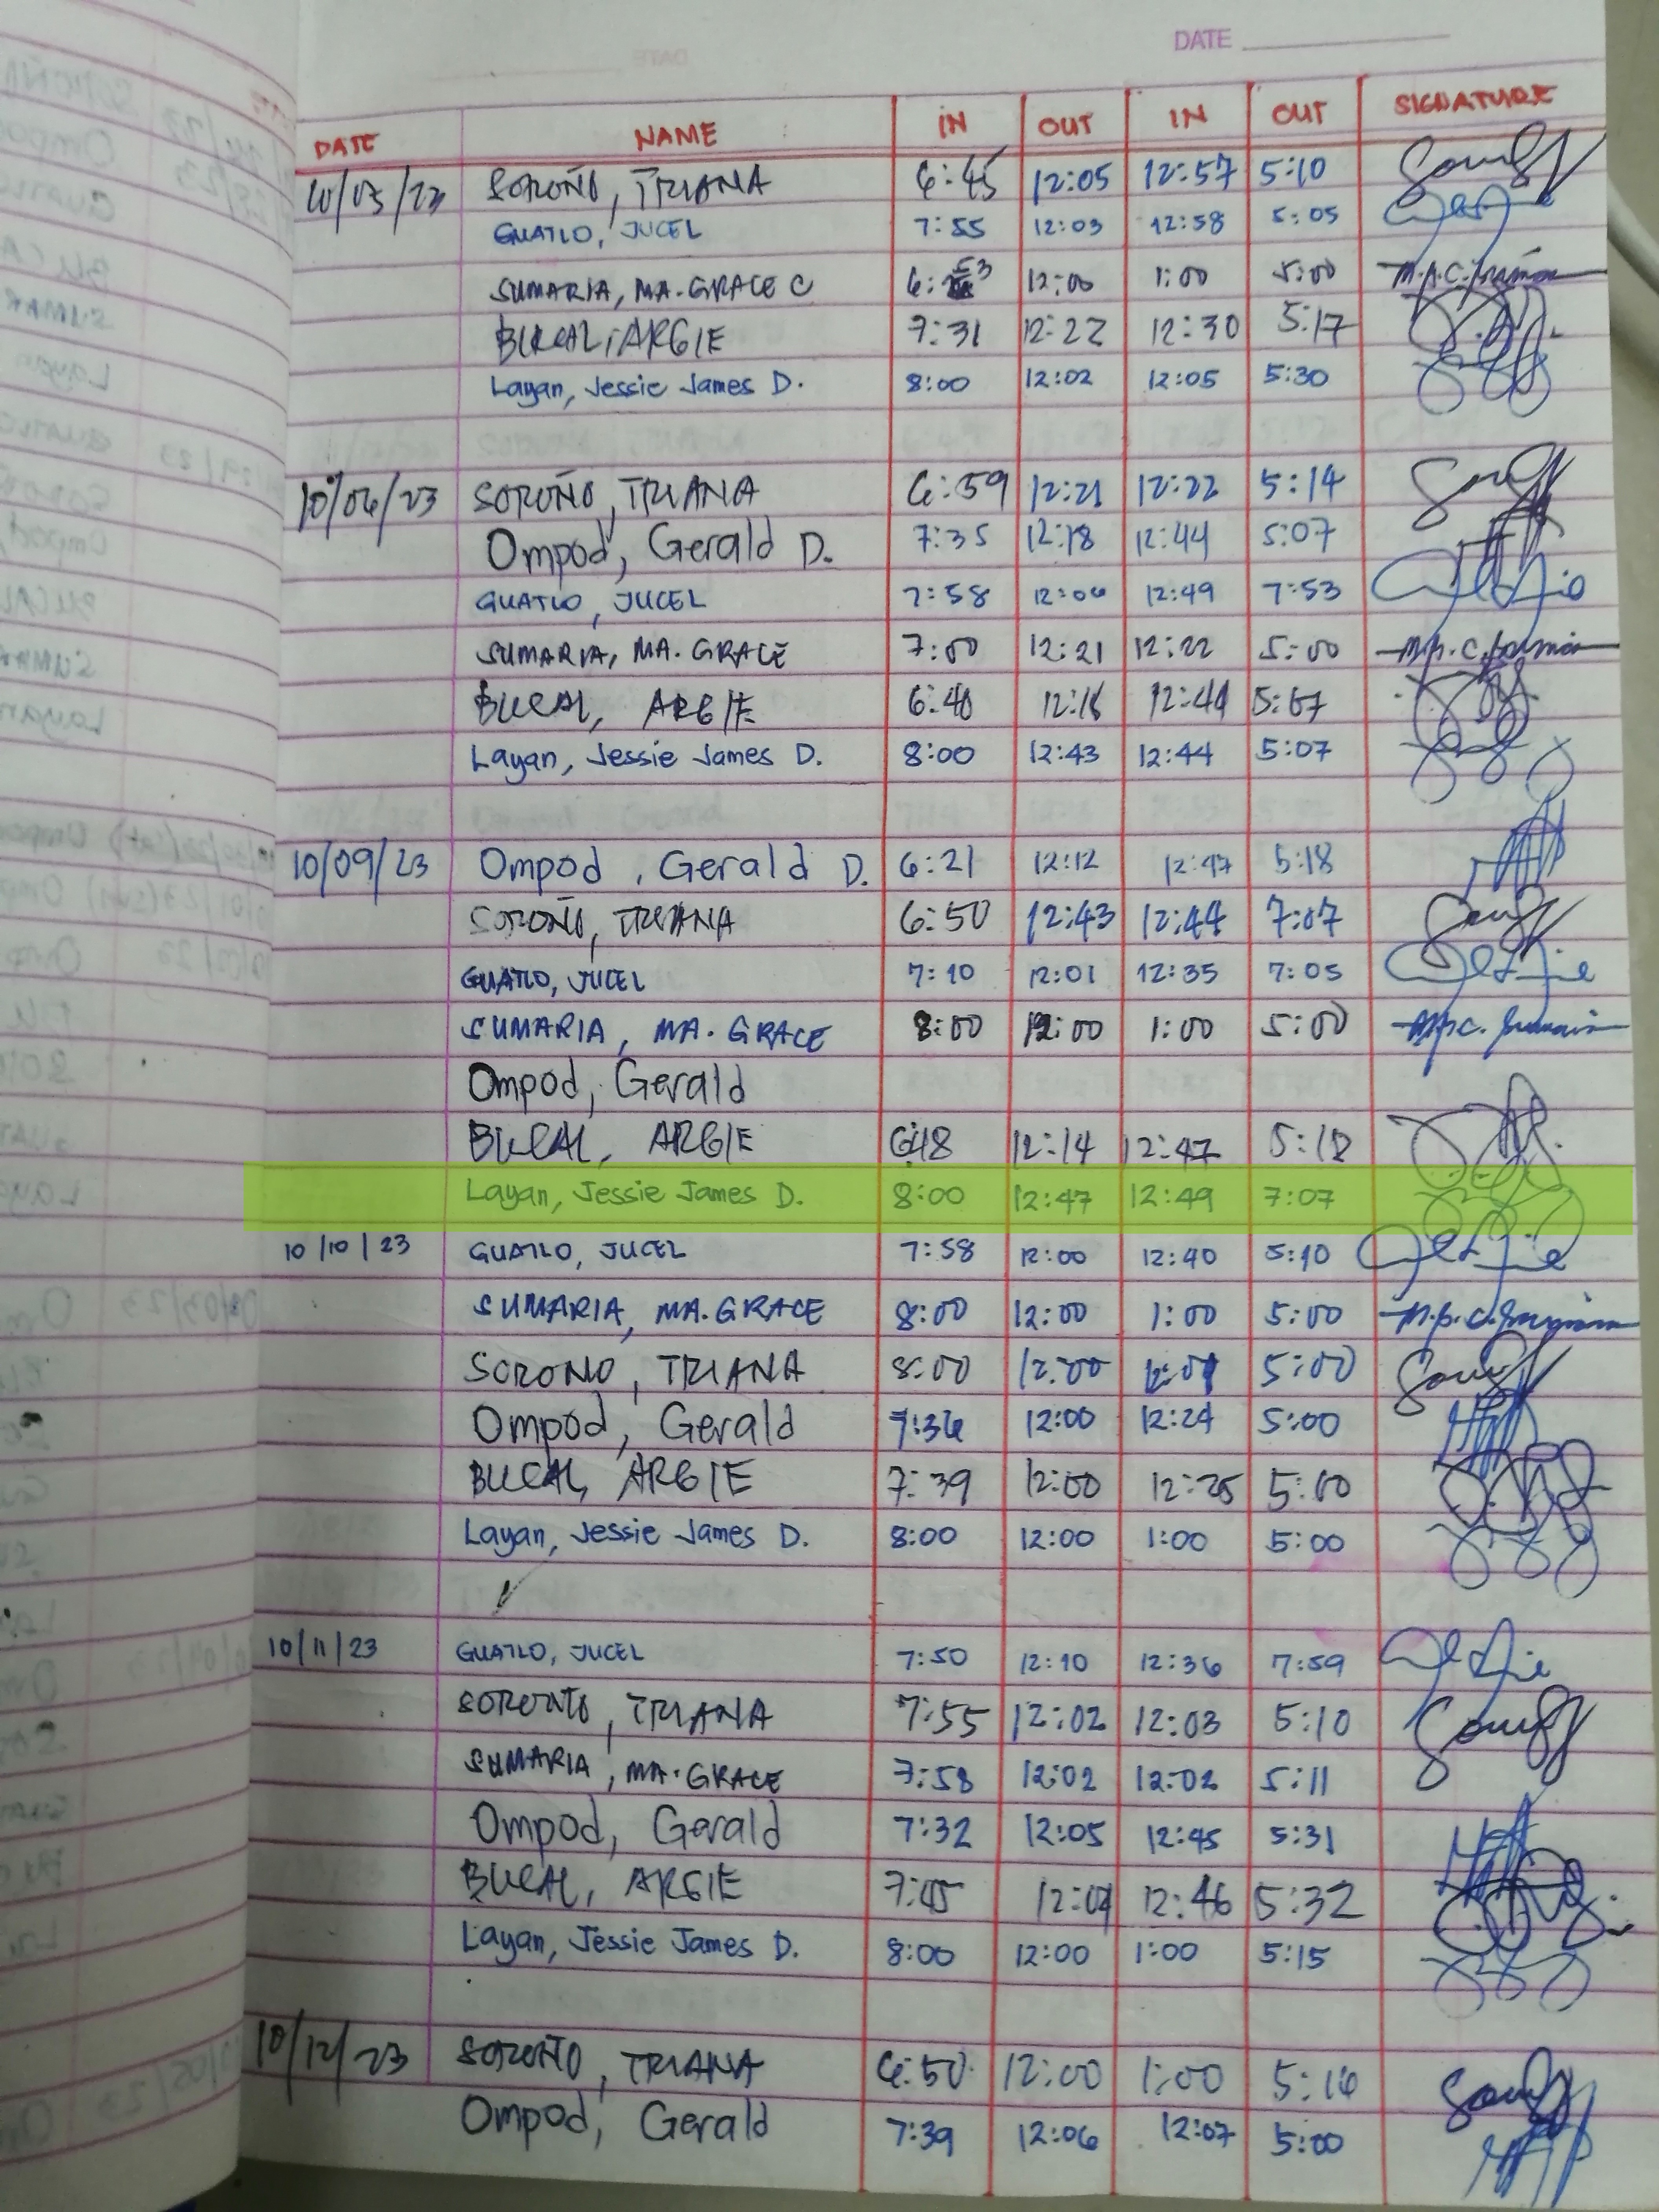 DATE
DATE NAME IN OUT IN OUT SIGNATURE
SOROÑO, TRIANA 6:45 12:05 12:57 5:10
GUATLO, JUCEL 7:55 12:03 12:58 5:05
SUMARIA, MA. GRACE C 12:00 1:00 5:00
BUCAL, ARGIE 7:31 12:22 12:30 5:17
Layan, Jessie James D. 8:00 12:02 12:05 5:30
10/06/23 SOROÑO, TRIANA 6:59 12:21 12:22 5:14
Ompod, Gerald D. 7:35 12:18 12:44 5:07
GUATLO, JUCEL 7:58 12:06 12:49 7:53
SUMARIA, MA. GRACE 7:00 12:21 12:22 5:00
BUCAL, ARGIE 6:40 12:44
Layan, Jessie James D. 8:00 12:43 12:44 5:07
10/09/23 Ompod, Gerald D. 6:21 12:12 12:47 5:18
SOROÑO, TRIANA 6:50 12:43 12:44 7:07
GUATLO, JUCEL 7:10 12:01 12:35 7:05
SUMARIA, MA. GRACE 8:00 12:00 1:00 5:00
Ompod, Gerald
BUCAL, ARGIE 6:48 12:14 12:47 5:18
Layan, Jessie James D. 8:00 12:47 12:49 7:07
10/10/23 GUATLO, JUCEL 7:58 12:00 12:40 5:10
SUMARIA, MA. GRACE 8:00 12:00 1:00 5:00
SOROÑO, TRIANA 8:00 12:00 5:00
Ompod, Gerald 7:36 12:00 12:24 5:00
BUCAL, ARGIE 7:39 12:00 12:25 5:00
Layan, Jessie James D. 8:00 12:00 1:00 5:00
10/11/23 GUATLO, JUCEL 7:50 12:10 12:36 7:59
SOROÑO, TRIANA 7:55 12:02 12:03 5:10
SUMARIA, MA. GRACE 7:58 12:02 12:02 5:11
Ompod, Gerald 7:32 12:05 12:45 5:31
BUCAL, ARGIE 7:45 12:04 12:46 5:32
Layan, Jessie James D. 8:00 12:00 1:00 5:15
10/12/23 SOROÑO, TRIANA 6:50 12:00 1:00 5:16
Ompod, Gerald 7:39 12:06 12:07 5:00